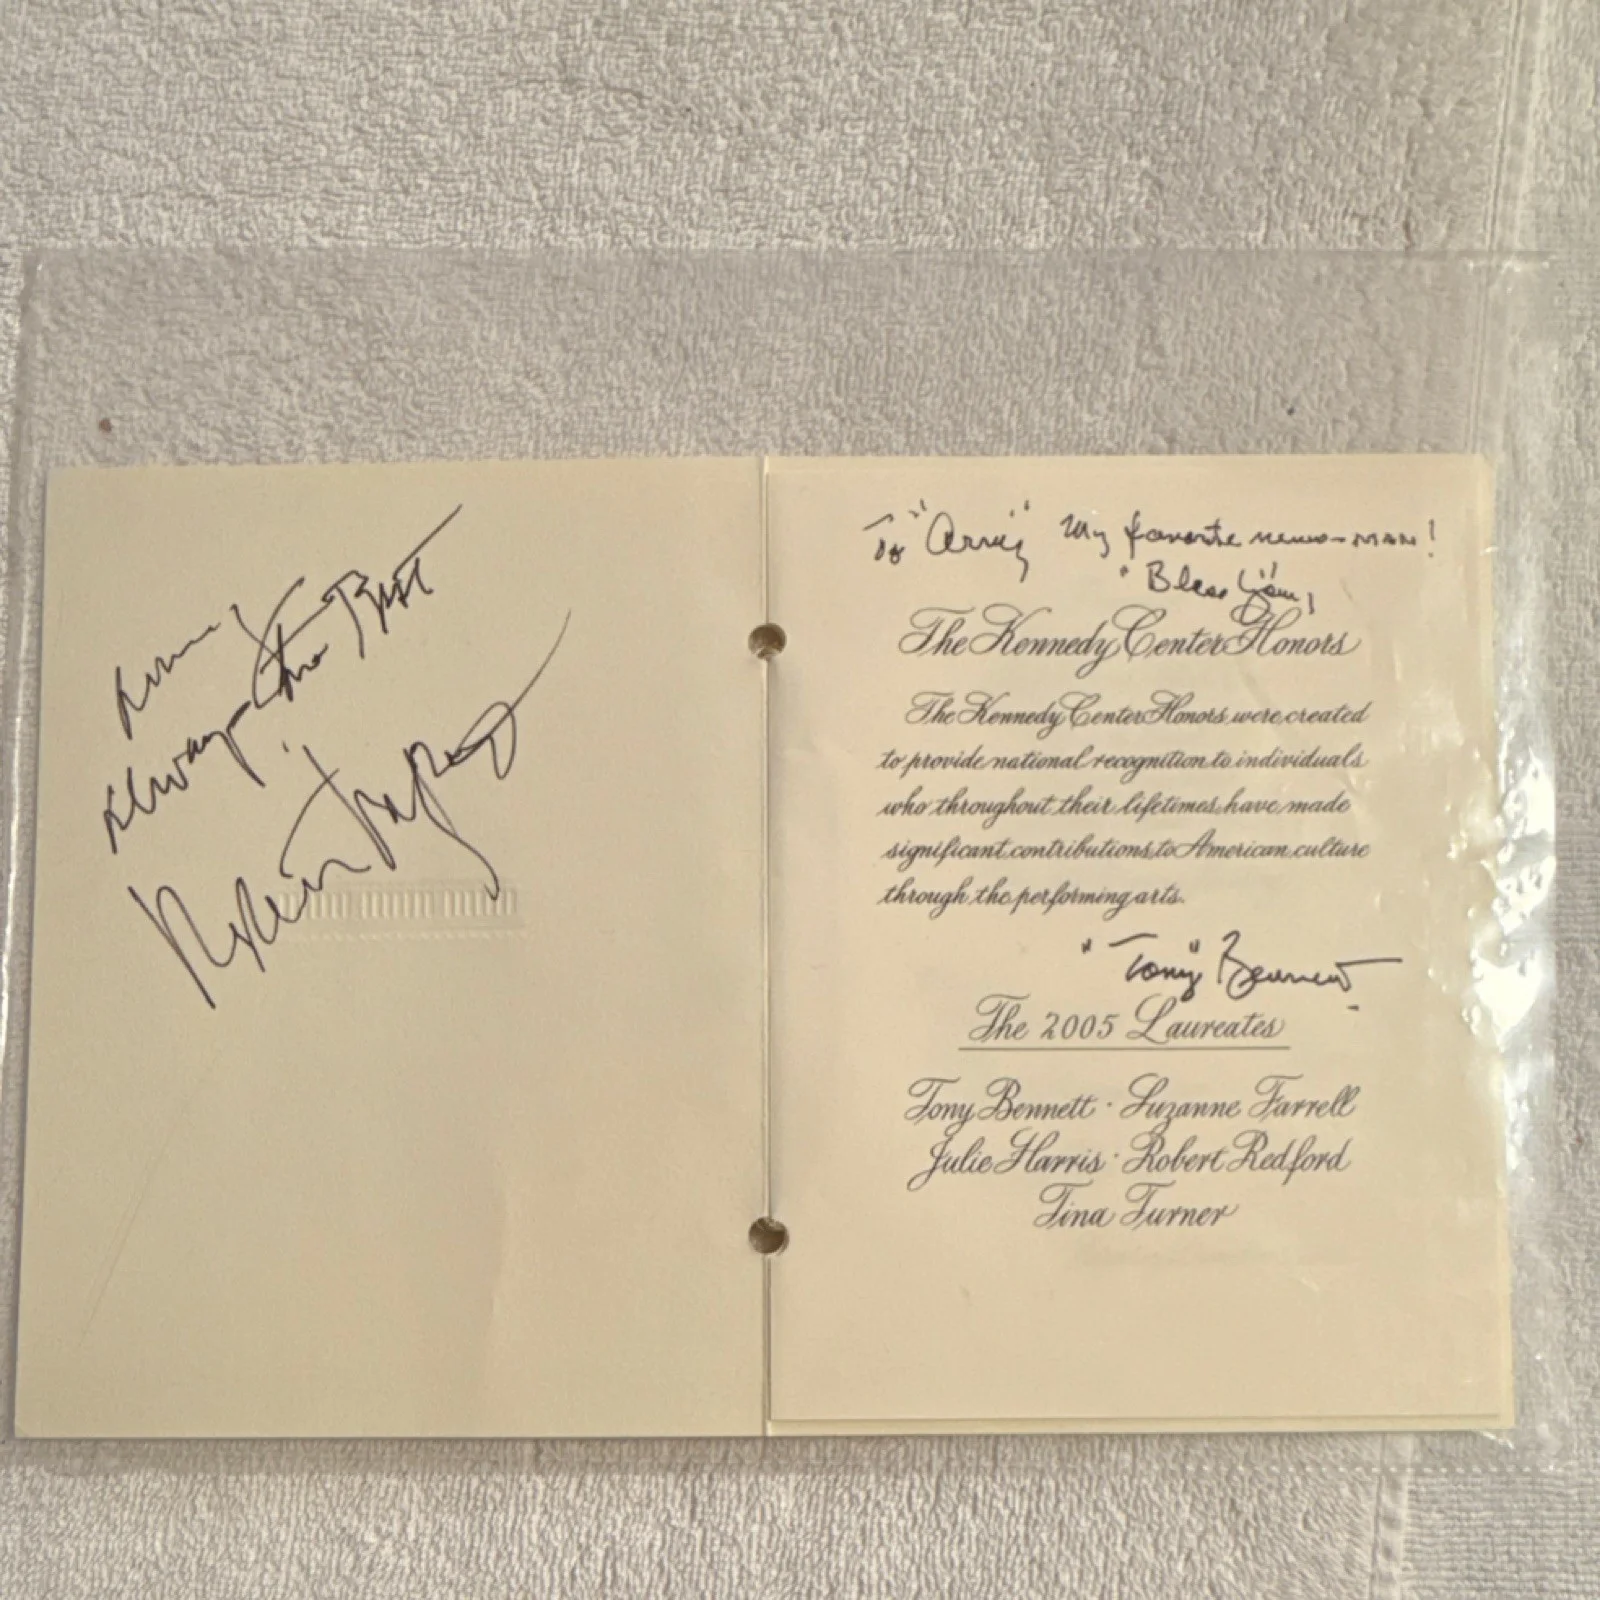 Always the Best
To "Arny" My favorite news-man!
"Bless You",
The Kennedy Center Honors
The Kennedy Center Honors were created
to provide national recognition to individuals
who throughout their lifetimes have made
significant contributions to American culture
through the performing arts.
"Tony" Bennett
The 2005 Laureates
Tony Bennett · Suzanne Farrell
Julie Harris · Robert Redford
Tina Turner